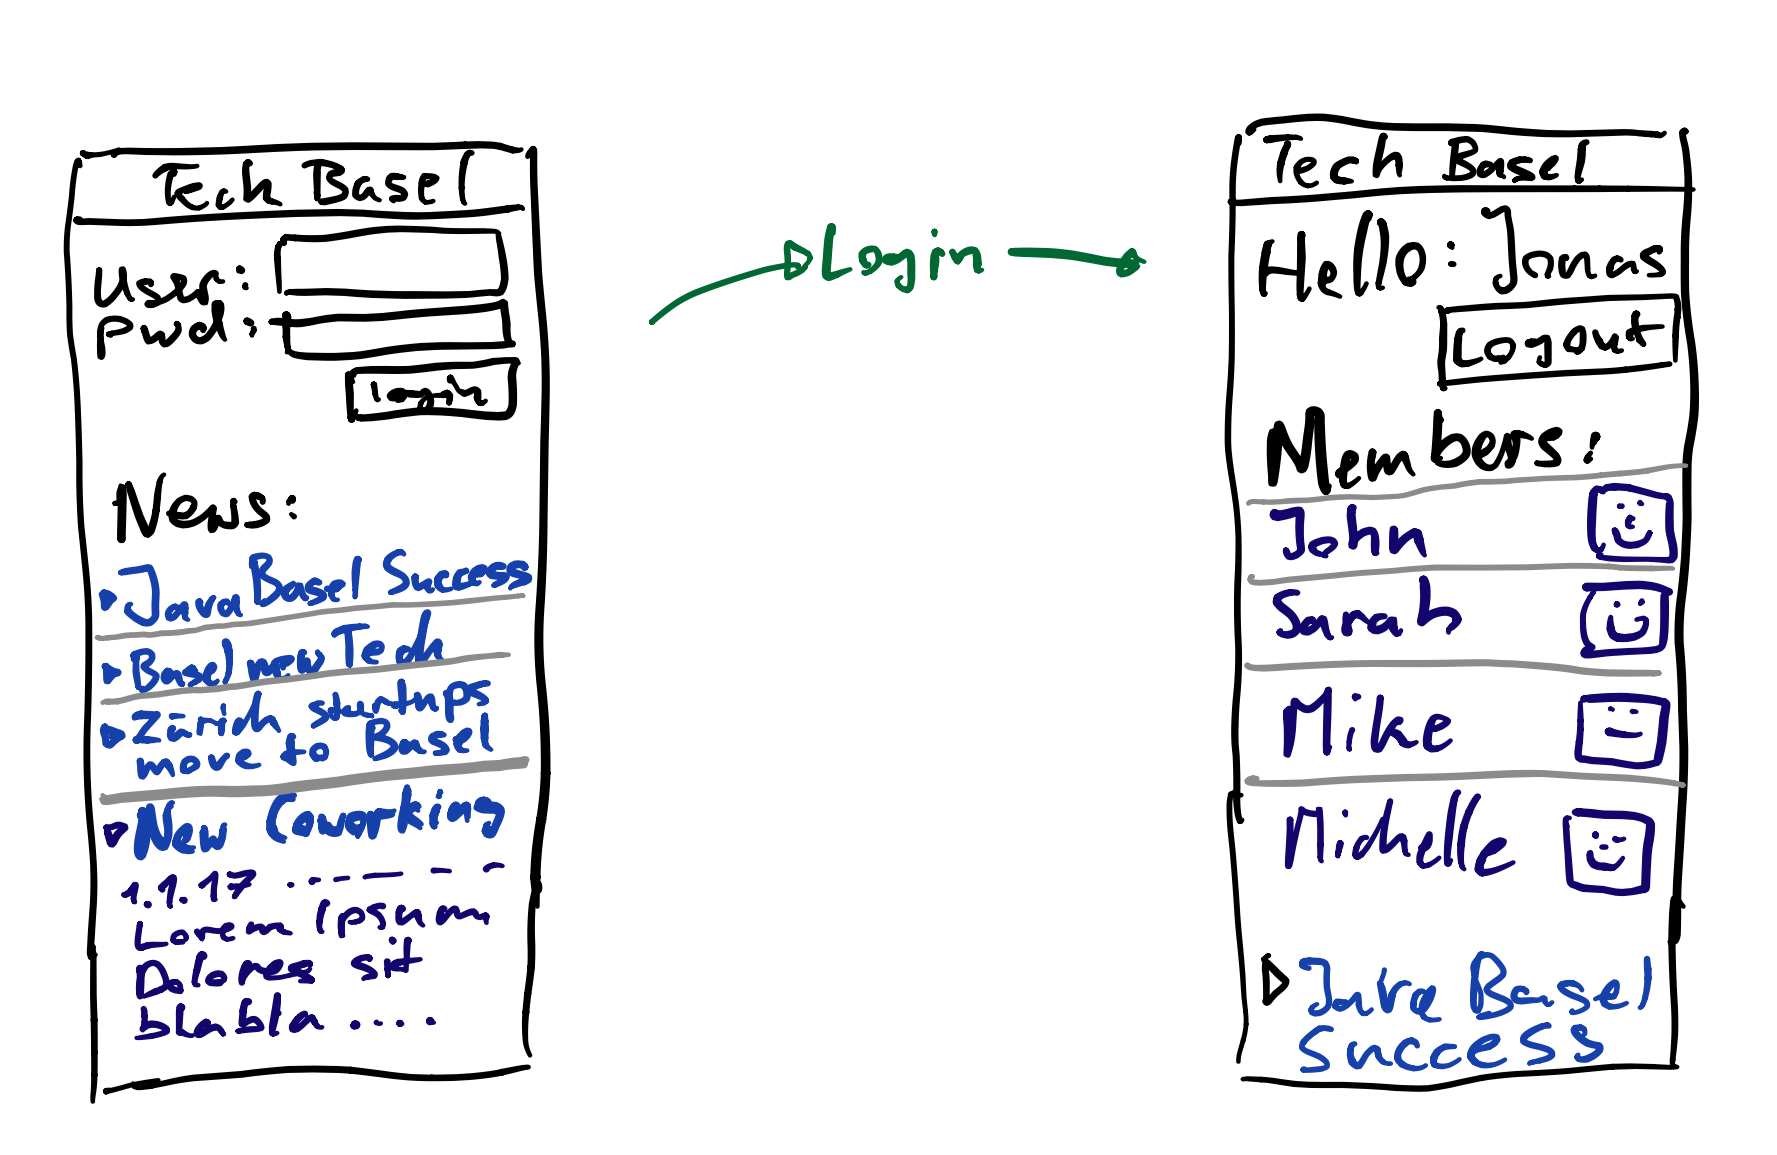 Tech Basel
User:
Pwd:
login
News:
Java Basel Success
Basel new Tech
Zürich startups
move to Basel
New Coworking
1.1.17
Lorem Ipsum
Dolores sit
blabla ....
Login
Tech Basel
Hello: Jonas
Logout
Members:
John
Sarah
Mike
Michelle
Java Basel
Success